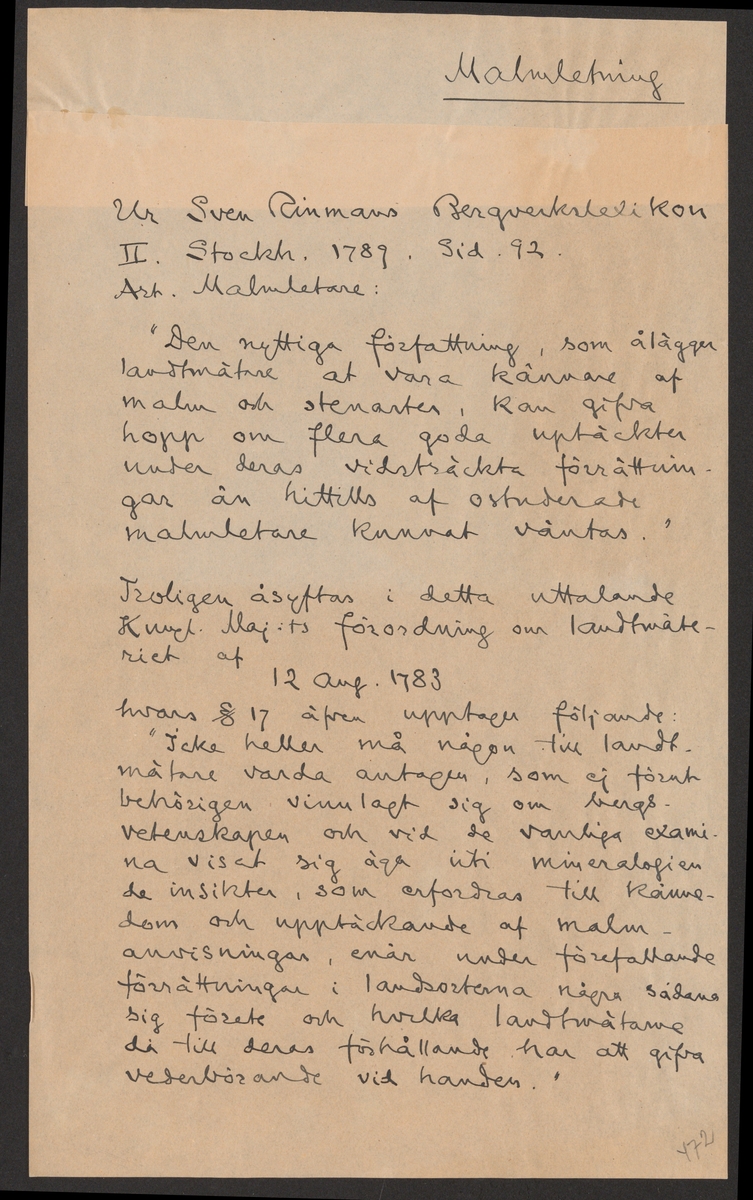 Malmletning
Ur Sven Rinmans Bergverkslexikon
II. Stockh. 1789. Sid. 92.
Art. Malmletare:
"Den nyttiga författning, som ålägger
landtmätare at vara kännare af
malm och stenarter, kan gifva
hopp om flera goda uptäckter
under deras vidsträckta förrättnin-
gar än hittills af ostuderade
malmletare kunnat väntas."
Troligen åsyftas i detta uttalande
Kungl. Maj:ts förordning om landtmäte-
riet af
12 Aug. 1783
hvars § 17 äfven upptager följande:
"Icke heller må någon till landt-
mätare varda antagen, som ej förut
behörigen vinnlagt sig om bergs-
vetenskapen och vid de vanliga exami-
na visat sig äga uti mineralogien
de insikter, som erfordras till känne-
dom och upptäckande af malm-
anvisningar, enär under förefallande
förrättningar i landsorterna några sådana
sig förete och hvilka landtmätarne
då till deras förhållande har att gifva
vederbörande vid handen."
472